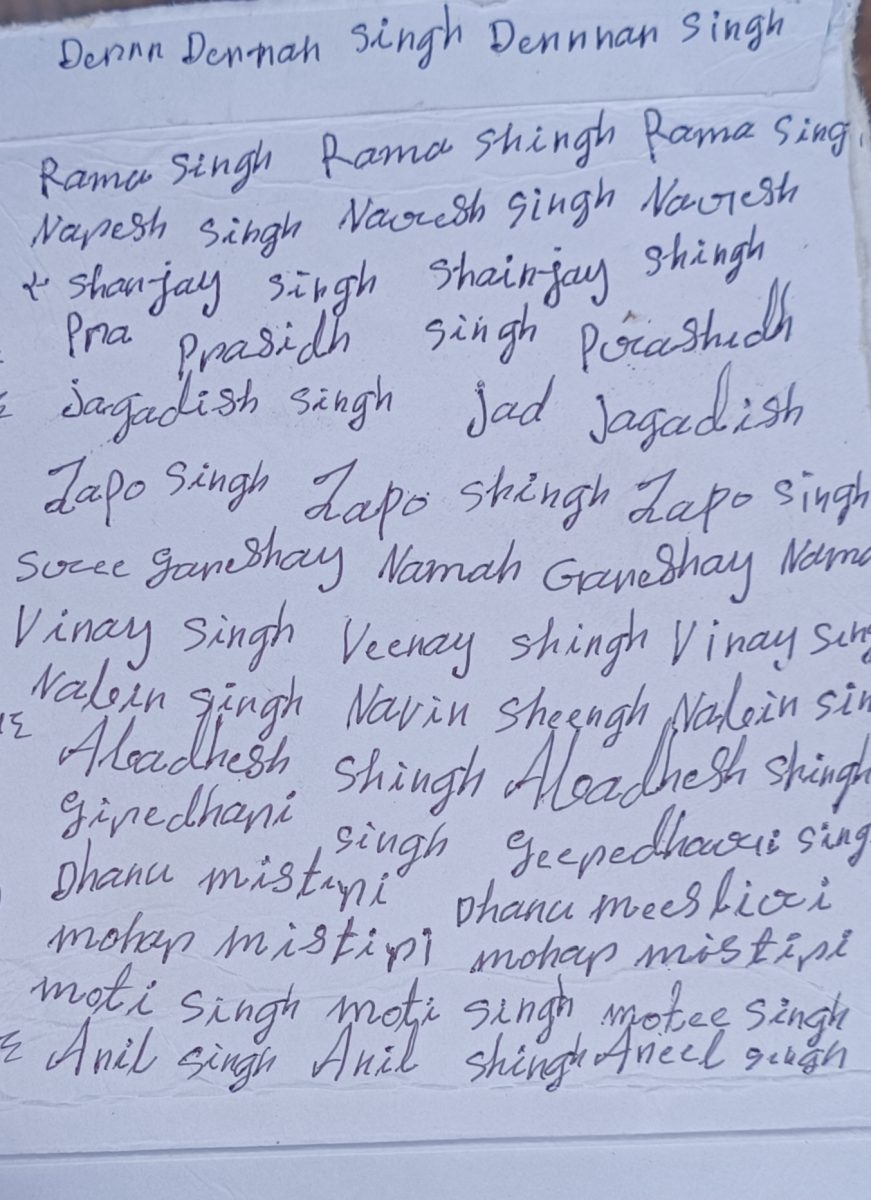 Dennn Dennah Singh Dennnan Singh
Rama Singh Rama Shingh Rama Sing
Napesh Singh Naresh Singh Naresh
Shan-jay Singh Shain-jay Shingh
Pra Prasidh Singh Porashidh
Jagadish Singh Jad Jagadish
Zapo Singh Zapo Shingh Zapo Singh
Soree Ganeshay Namah Ganeshay Nama
Vinay Singh Veenay Shingh Vinay Sing
Nalein Singh Navin Sheengh Nalein Sin
Abadhesh Shingh Abadhesh Shingh
Giredhani Singh Geeredhari Sing
Dhanu mistiri Dhanu meestiri
mohap mistipi mohap mistipi
moti Singh moti Singh motee Singh
Anil Singh Anil Shingh Aneel Singh